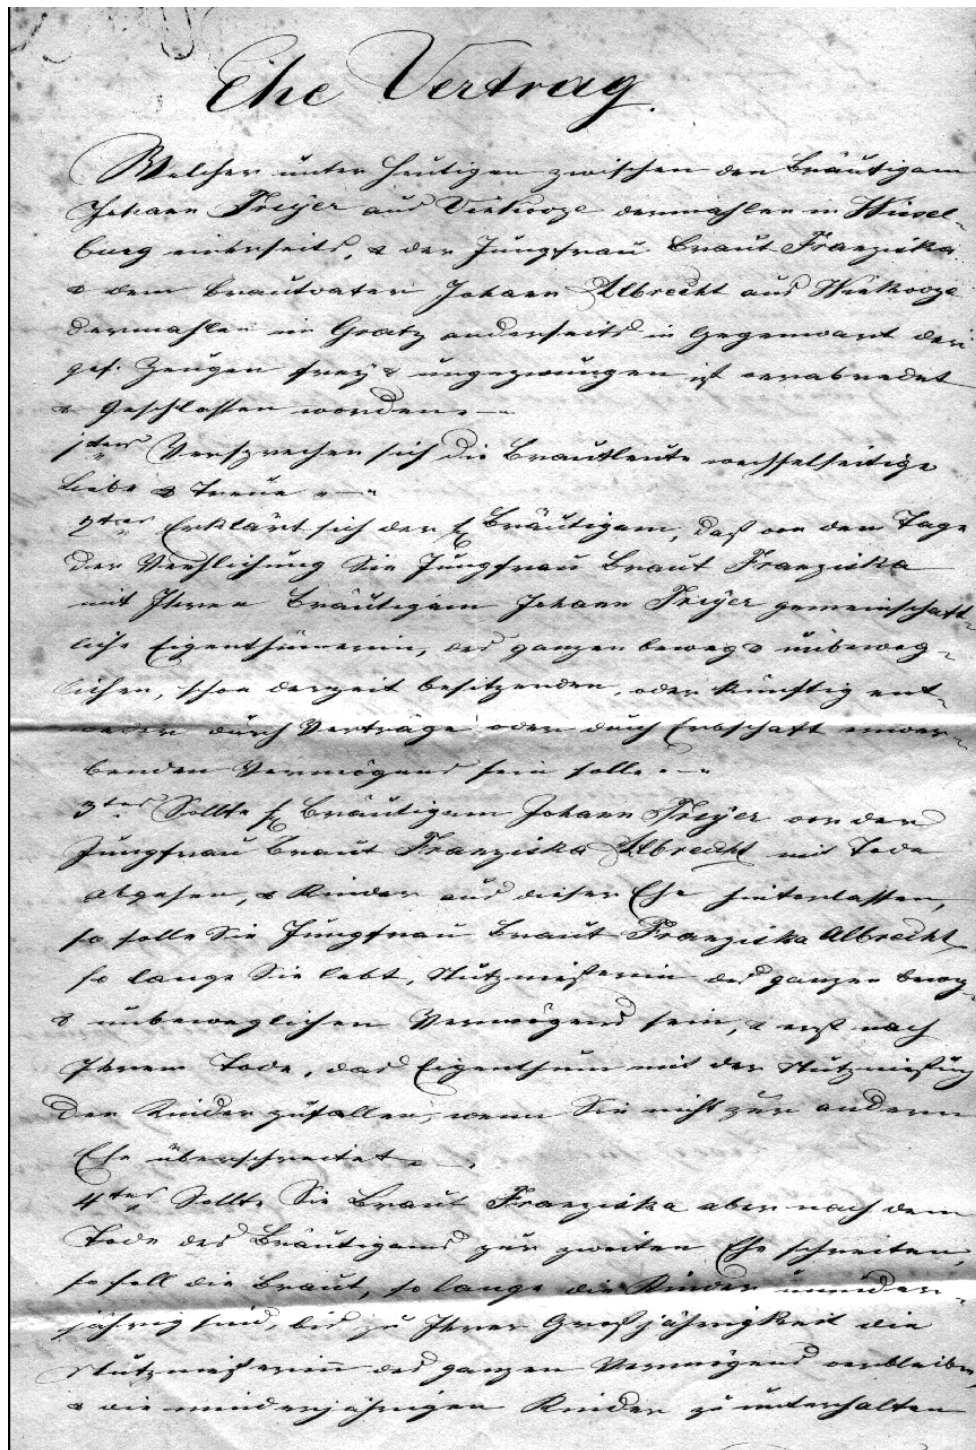 Ehe Vertrag.
Welcher unter heutigen zwischen den Bräutigam
Johann Freÿer aus dermahlen in Wiesel-
burg einerseits, & der Jungfrau Braut Franziska
& dem Brautvater Johann Albrecht aus
dermahlen in Gratz anderseits in Gegenwart der
gef. Zeugen freÿ & ungezwungen ist verabredet
& geschlossen worden.—
1tens Versprechen sich die Brautleute wechselseitige
Liebe & Treue.—
2tens Erklärt sich der H Bräutigam, daß von dem Tage
der Verehlichung Sie Jungfrau Braut Franziska
mit Ihren Bräutigam Johann Freÿer gemeinschaft-
liche Eigenthümerin, des ganzen beweg & unbeweg-
lichen, schon derzeit besitzenden, oder künftig ent-
weder durch Verträge oder durch Erbschaft erwer-
benden Vermögens sein solle.—
3tens Sollte H Bräutigam Johann Freÿer vor der
Jungfrau Braut Franziska Albrecht mit Tode
abgehen, & Kinder aus dieser Ehe hinterlassen,
so solle Sie Jungfrau Braut Franziska Albrecht
so lange Sie lebt, Nutznießerin des ganzen beweg-
& unbeweglichen Vermögens sein, & erst nach
Ihrem Tode, das Eigenthum mit der Nutznießung
den Kinder zufallen, wenn Sie nicht zur andern
Ehe überschreitet.—
4tens Sollte Sie Braut Franziska aber nach dem
Tode des Bräutigams zur zweiten Ehe schreiten,
so soll die Braut, so lange die Kinder minder-
jährig sind, bis zu Ihrer Großjährigkeit die
Nutznießerinn des ganzen Vermögens verbleiben,
& die minderjährigen Kinder zu unterhalten